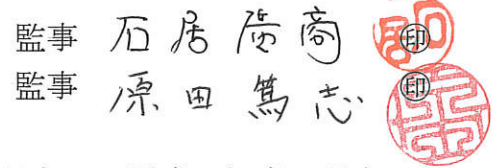 監事 石居 商 ㊞
監事 原田 篤志 ㊞